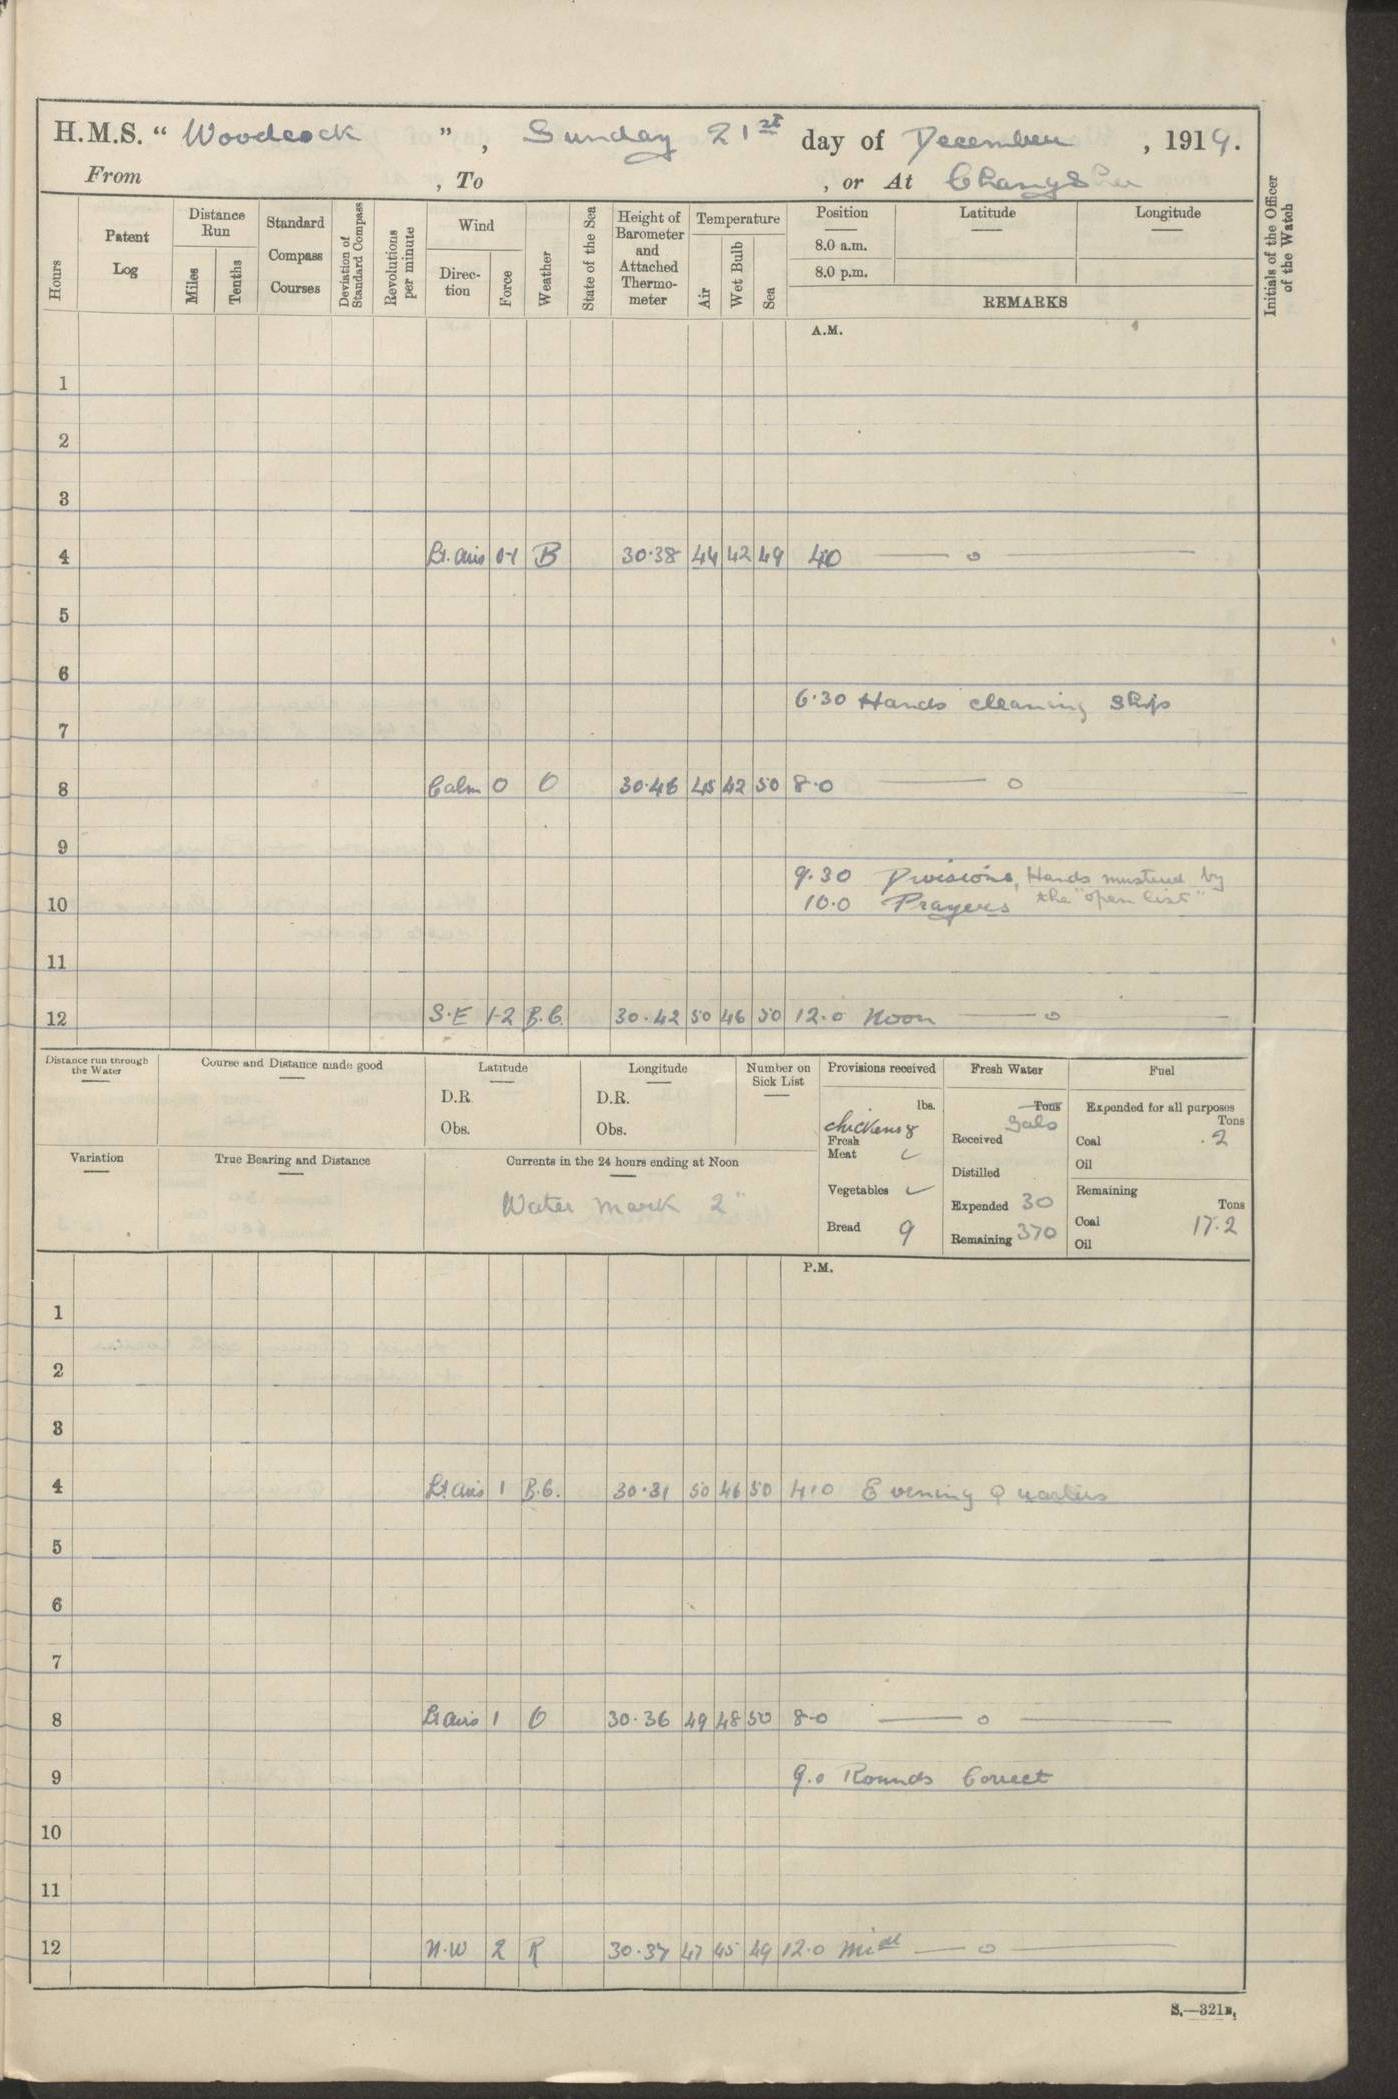 H.M.S. “ Woodcock ”, Sunday 21st day of December, 1919.
From , To , or At ChangSha
Hours
Patent Log
Distance Run
Miles
Tenths
Standard Compass Courses
Deviation of Standard Compass
Revolutions per minute
Wind
Direc-tion
Force
Weather
State of the Sea
Height of Barometer and Attached Thermo-meter
Temperature
Air
Wet Bulb
Sea
Position
8.0 a.m.
8.0 p.m.
Latitude
Longitude
REMARKS
Initials of the Officer of the Watch
A.M.
1
2
3
4 Lt. airs 0-1 B 30.38 44 42 49 4.0 — o —
5
6
6.30 Hands cleaning ship
7
8 Calm 0 O 30.46 45 42 50 8.0 — o —
9
9.30 Divisions, Hands mustered by
10 10.0 Prayers the "open list"
11
12 S.E 1-2 B.C. 30.42 50 46 50 12.0 Noon — o —
Distance run through the Water
Course and Distance made good
Latitude
D.R
Obs.
Longitude
D.R.
Obs.
Number on Sick List
Provisions received
lbs.
chickens 8
Fresh Meat ✓
Vegetables ✓
Bread 9
Fresh Water
Tons
Gals
Received
Distilled
Expended 30
Remaining 370
Fuel
Expended for all purposes
Tons
Coal .2
Oil
Remaining
Tons
Coal 17.2
Oil
Variation
True Bearing and Distance
Currents in the 24 hours ending at Noon
Water mark 2"
P.M.
1
2
3
4 Lt airs 1 B.C. 30.31 50 46 50 4.0 Evening Quarters
5
6
7
8 Lt airs 1 O 30.36 49 48 50 8.0 — o —
9 9.0 Rounds Correct
10
11
12 N.W 2 R 30.37 47 45 49 12.0 Midt — o —
S.—321B.